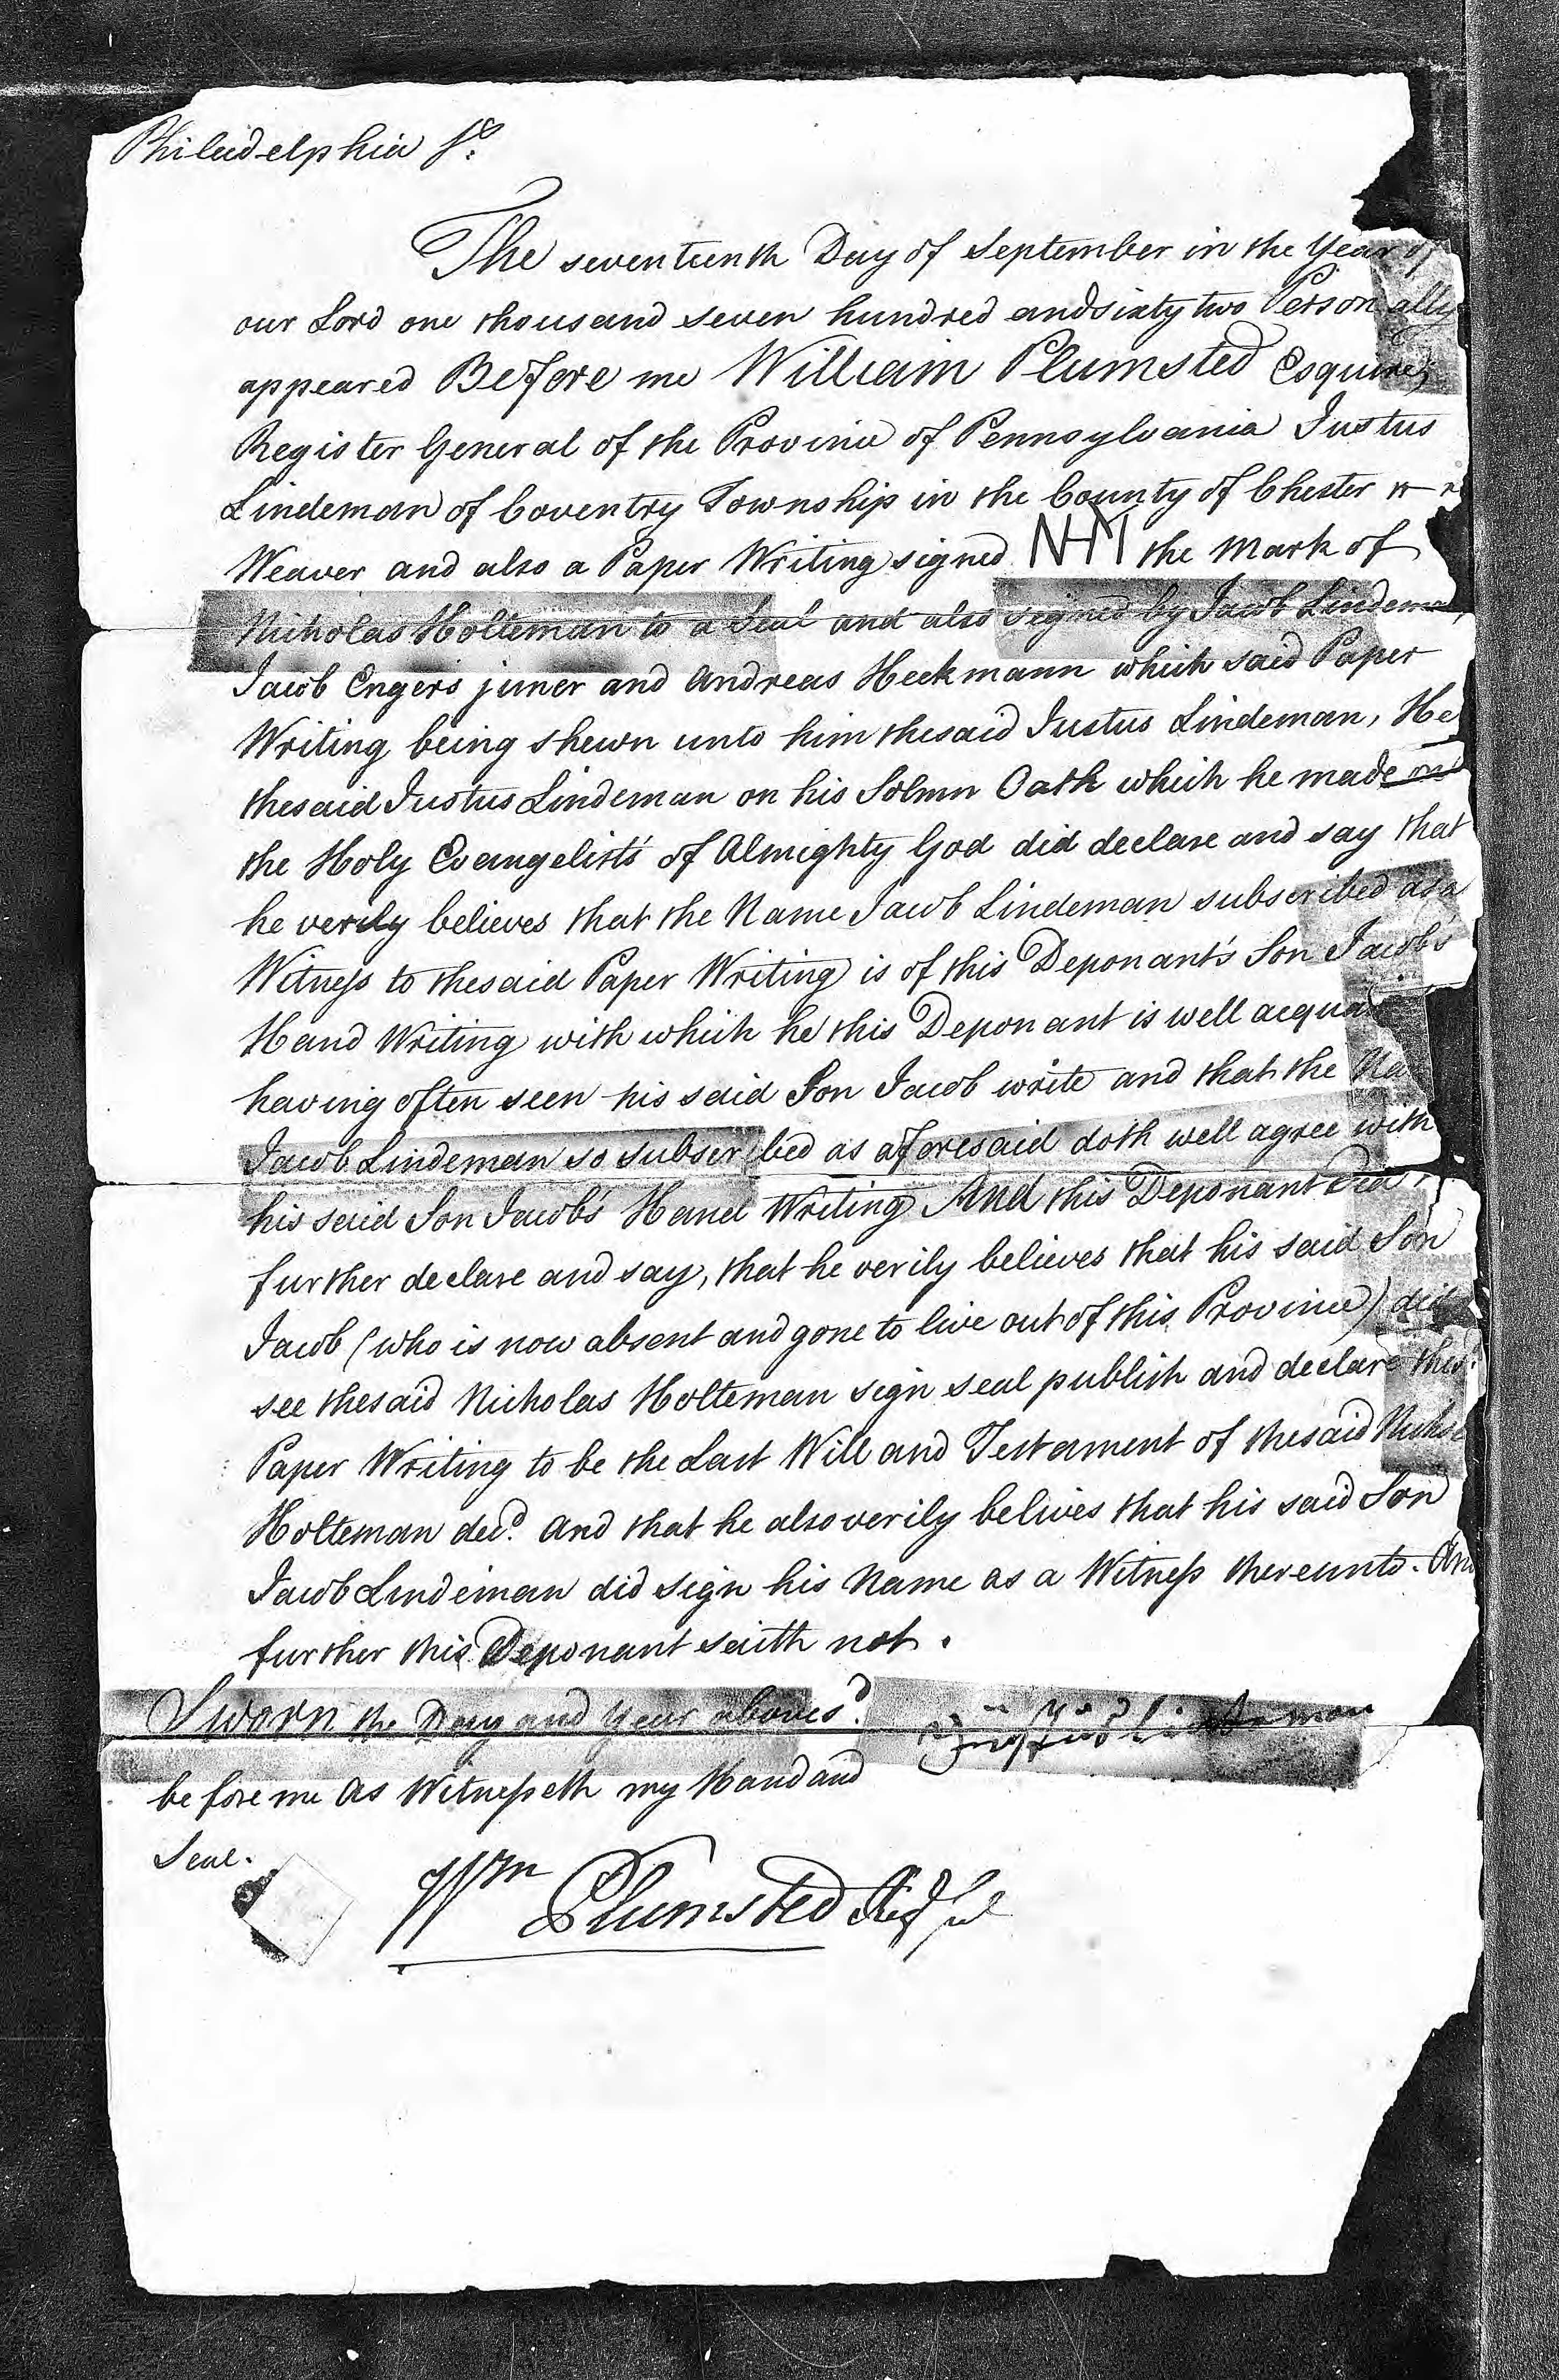 Philadelphia ss:
The seventeenth Day of September in the Year of
our Lord one thousand seven hundred and sixty two Personally
appeared Before me William Plumsted Esquire,
Register General of the Province of Pennsylvania Justus
Lindeman of Coventry Township in the County of Chester
Weaver and also a Paper Writing signed NM the Mark of
Nicholas Holteman to a Seal and also signed by Jacob Lindeman,
Jacob Engers juner and Andreas Heckmann which said Paper
Writing being shewn unto him the said Justus Lindeman, He
the said Justus Lindeman on his Solmn Oath which he made on
the Holy Evangelists of Almighty God did declare and say that
he verily believes that the Name Jacob Lindeman subscribed as a
Witness to the said Paper Writing is of this Deponant's Son Jacob's
Hand Writing with which he this Deponant is well acqua
having often seen his said Son Jacob write and that the Na
Jacob Lindeman so subscribed as aforesaid doth well agree with
his said Son Jacob's Hand Writing And this Deponant Did
further declare and say, that he verily believes that his said Son
Jacob (who is now absent and gone to live out of this Province) did
see the said Nicholas Holteman sign seal publish and declare this
Paper Writing to be the Last Will and Testament of the said Nichol
Holteman decd. And that he also verily belives that his said Son
Jacob Lindeman did sign his Name as a Witness thereunto. And
further this Deponant saith not.
Sworn the Day and Year abovesd.
Justus Lindeman
before me As Witnesseth my Hand and
Seal.
Wm Plumsted Reg Gel